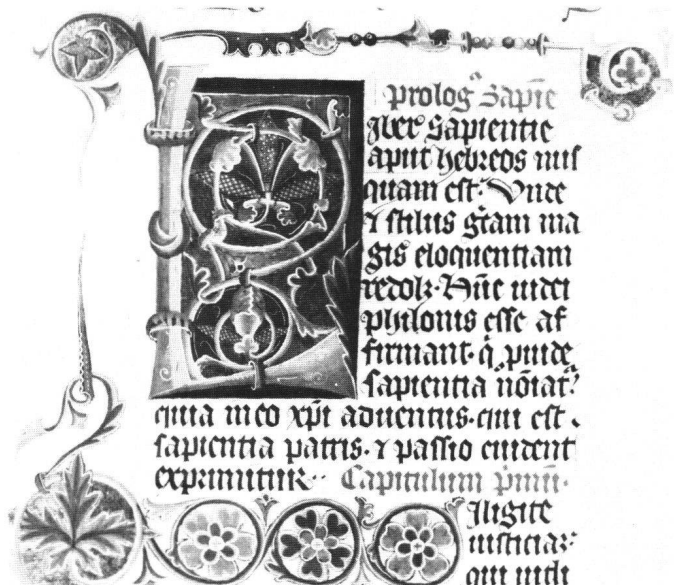 prolog Sapie
Iber Sapientie
aput hebreos nus
quam est. Vnde
⁊ stilus grām ma
gis eloquentiam
redolȝ. Hūc iudei
philonis esse af
firmant. q̄ p̱inde
sapientia nōiat᷑
quia in eo xp̄i aduentus. qui est
sapientia patris. ⁊ passio euident᷑
exprimitur. Capitulum p̄mū.
Iligite
iusticiaꝫ
qui iudi